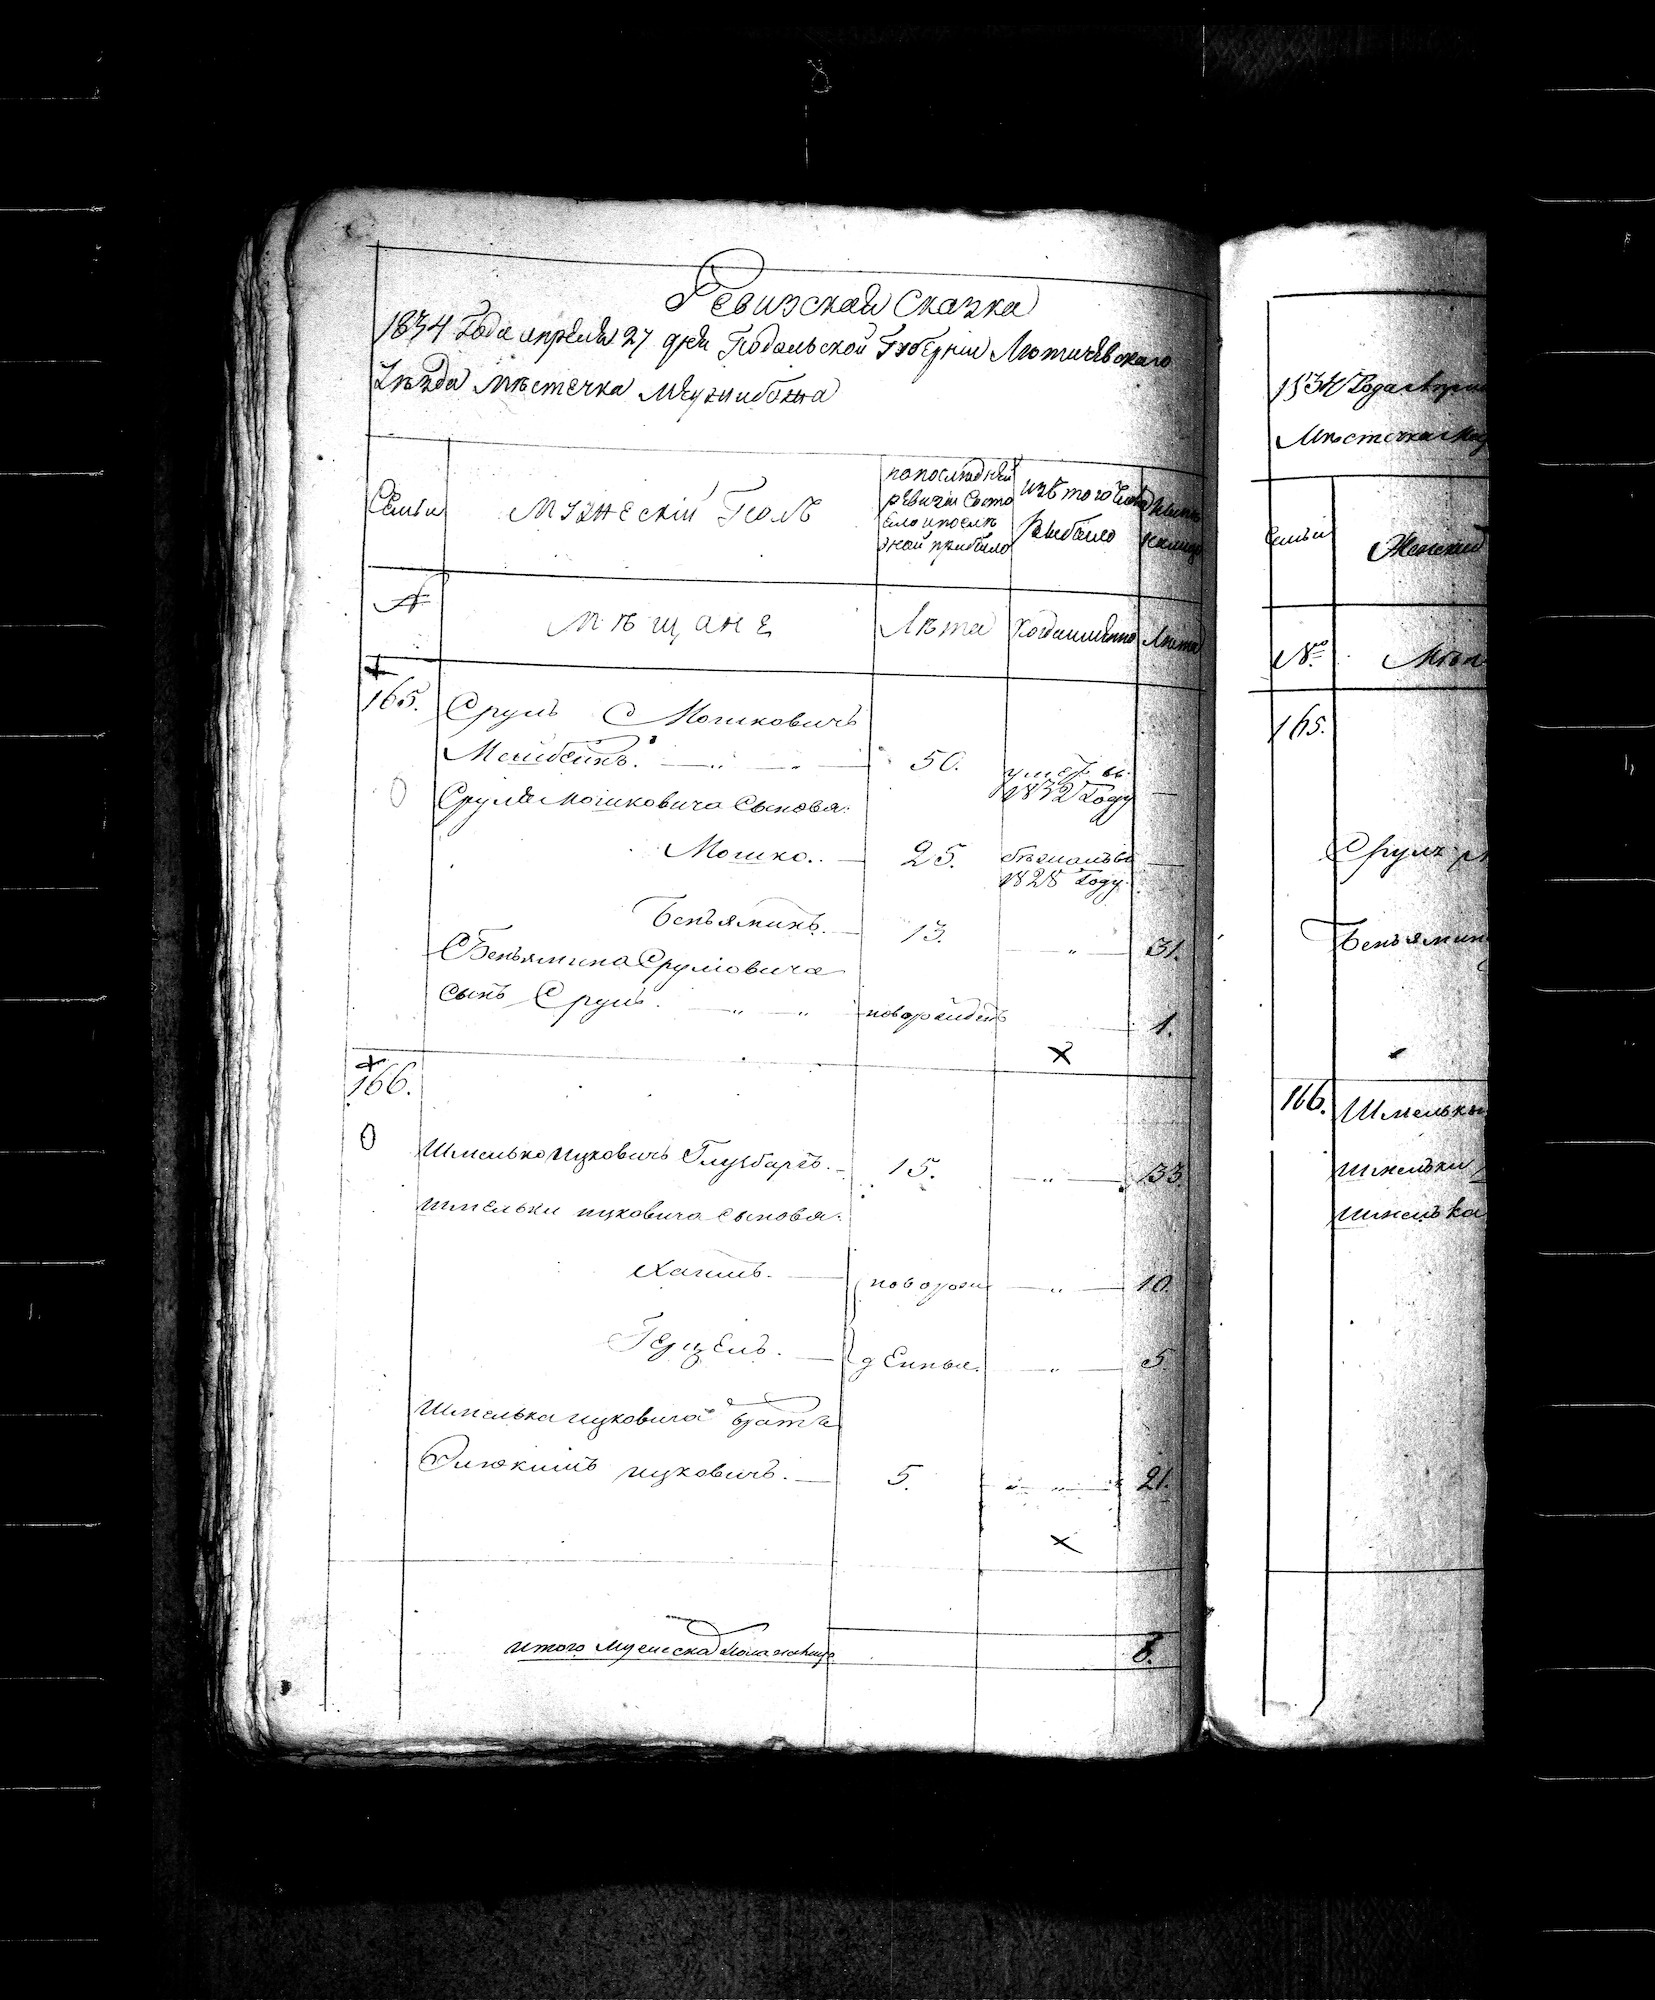 Ревизская Сказка
1834 Года апреля 27 дня Подольской Губерніи Летичевского
Уѣзда Мѣстечка Межибожа
Семьи
Мужескій Полъ
по последней
ревизіи состо
яло и послѣ
оной прибыло
Изъ того числа
выбыло
Нынѣ
на лицо
№
Мѣщане
Лѣта
Когда именно
Лѣта
165.
Сруль Мошковичъ
50.
умеръ въ
1832 Году
Сруля Мошковича Сыновя:
Мошко.
25.
1828 Году.
Беньяминъ.
13.
31.
Беньямина Срулiовича
сынъ Сруль.
новорожденъ
1.
166.
Шмелько Ицковичъ
15.
33.
Шмельки Ицковича сыновя:
Хаимъ.
новорож
10.
Герцель.
денные.
5.
Шмелька Ицковича братъ
Элюкимъ Ицковичъ.
5.
21.
Итого Мужеска Пола на лицо
1834 Года Апрел
Мѣстечка Меж
Семьи
Женский
№
165.
Сруля
Беньямин
166.
Шмельки
Шмельки
Шмелька